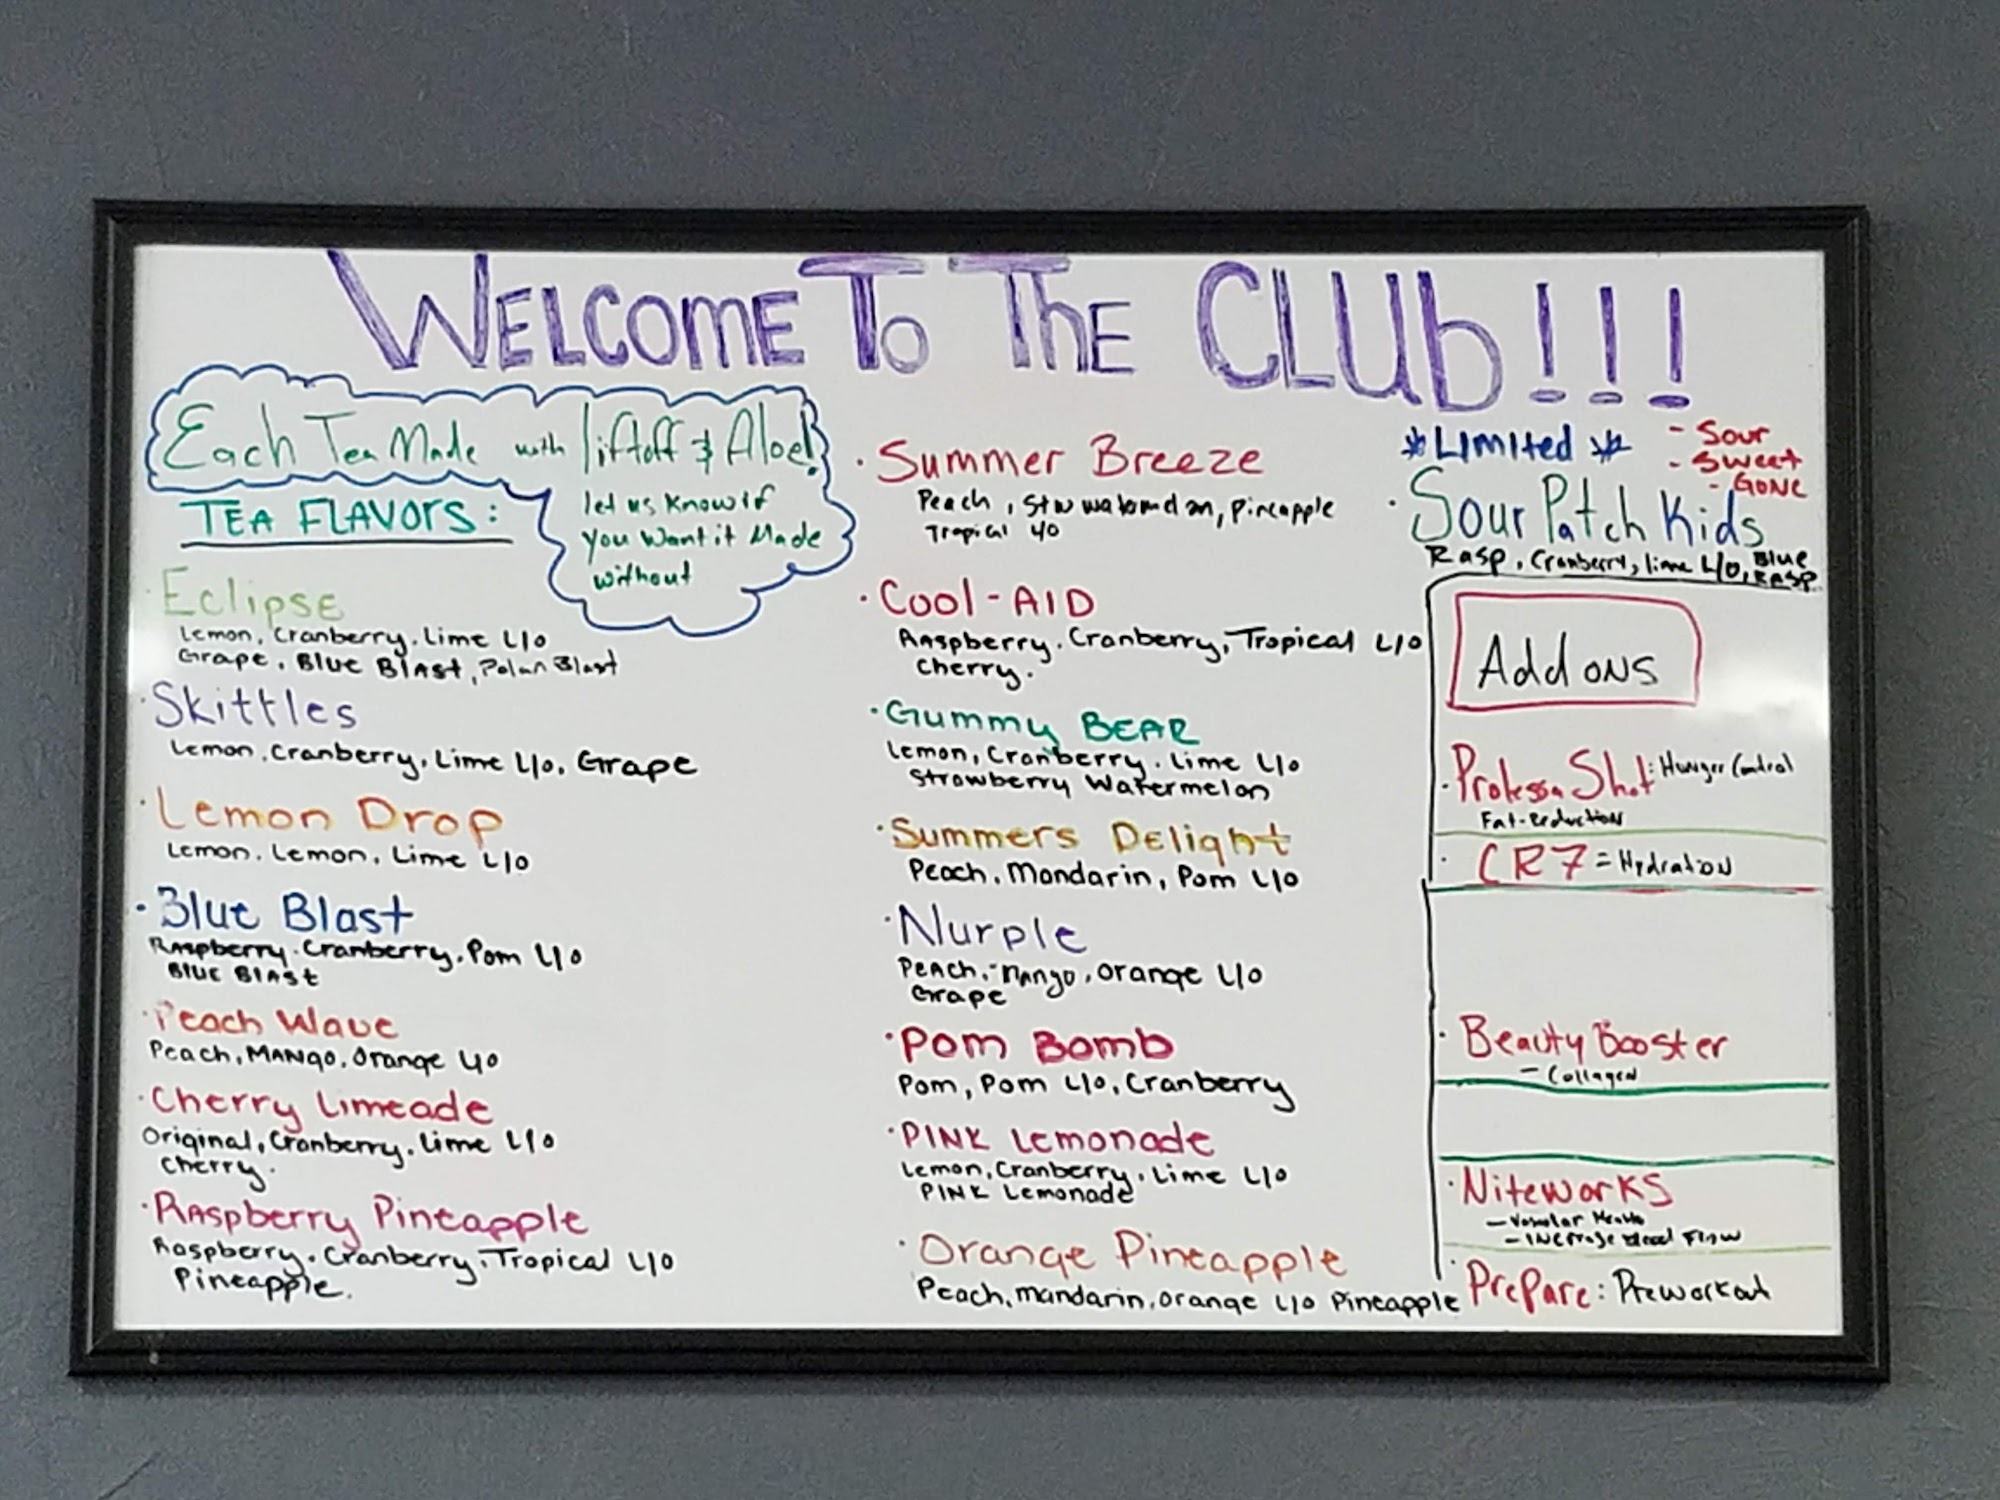 WELCOME TO THE CLUB!!!
Each Tea Made with liftoff & Aloe!
let us know if
you want it Made
without
TEA FLAVORS:
Eclipse
Lemon, Cranberry, Lime L/O
Grape, Blue Blast, Polar Blast
· Skittles
Lemon, Cranberry, Lime L/O, Grape
· Lemon Drop
Lemon, Lemon, Lime L/O
· Blue Blast
Raspberry, Cranberry, Pom L/O
Blue Blast
· Peach Wave
Peach, MANgo, Orange L/O
· Cherry Limeade
Original, Cranberry, Lime L/O
Cherry.
· Raspberry Pineapple
Raspberry, Cranberry, Tropical L/O
Pineapple.
· Summer Breeze
Peach, Stw watermelon, Pineapple
Tropical L/O
· Cool-AID
Raspberry, Cranberry, Tropical L/O
Cherry.
· Gummy BEAR
Lemon, Cranberry, Lime L/O
Strawberry Watermelon
· Summers Delight
Peach, Mandarin, Pom L/O
· Nurple
Peach, Mango, Orange L/O
Grape
· Pom Bomb
Pom, Pom L/O, Cranberry
· PINK Lemonade
Lemon, Cranberry, Lime L/O
PINK Lemonade
· Orange Pineapple
Peach, mandarin, orange L/O Pineapple
*LImited*
- Sour
- Sweet
- GONE
· Sour Patch Kids
Rasp, Cranberry, lime L/O, Blue
RASP
Add ONS
· Shot: Hunger Control
Fat-Reduction
· CR7 = Hydration
· Beauty Booster
- Collagen
· NiteworKS
- Health
- Blood Flow
· PrePare: Preworkout